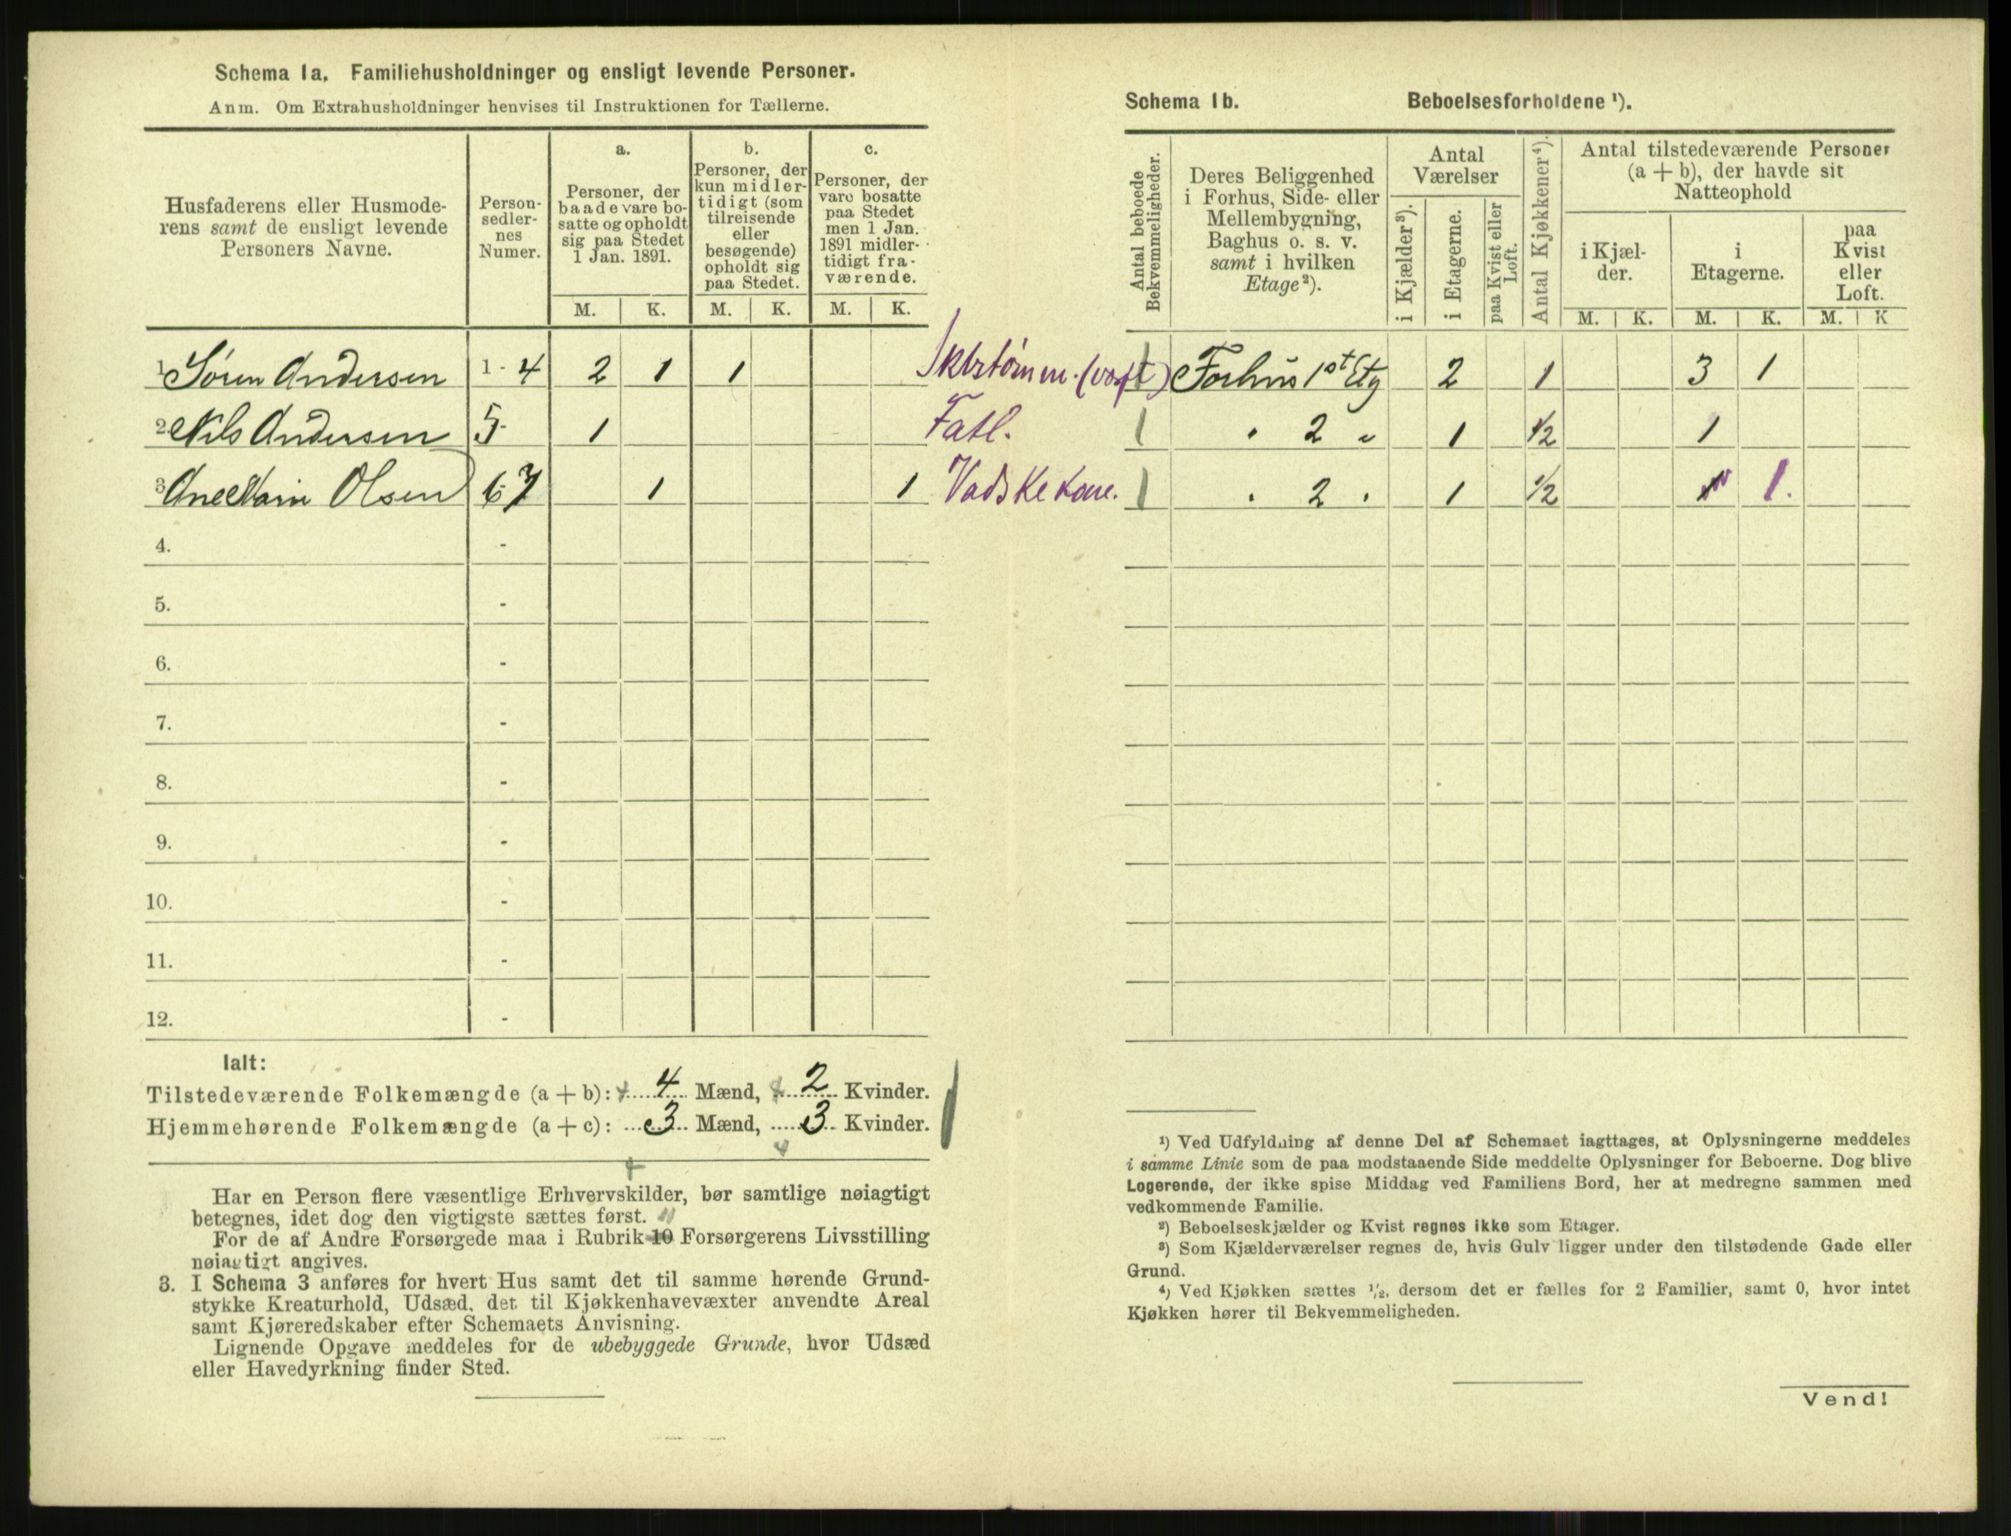 Schema 1a. Familiehusholdninger og ensligt levende Personer.
Anm. Om Extrahusholdninger henvises til Instruktionen for Tællerne.
Husfaderens eller Husmoderens samt de ensligt levende Personers Navne.
Person-sedler-nes Numer.
a.
Personer, der baade vare bosatte og opholdt sig paa Stedet 1 Jan. 1891.
b.
Personer, der kun midlertidigt (som tilreisende eller besøgende) opholdt sig paa Stedet.
c.
Personer, der vare bosatte paa Stedet men 1 Jan. 1891 midlertidigt fraværende.
M. K. M. K. M. K.
1 Sören Andersen 1-4 2 1 1
2 Nils Andersen 5- 1
3 Ane Marie Olsen 6-7 1 1
4. -
5. -
6. -
7. -
8. -
9. -
10. -
11. -
12. -
Ialt:
Tilstedeværende Folkemængde (a + b): 4 Mænd, 2 Kvinder.
Hjemmehørende Folkemængde (a + c): 3 Mænd, 3 Kvinder.
Har en Person flere væsentlige Erhvervskilder, bør samtlige nøiagtigt
betegnes, idet dog den vigtigste sættes først.
For de af Andre Forsørgede maa i Rubrik 10 Forsørgerens Livsstilling
nøiagtigt angives.
3. I Schema 3 anføres for hvert Hus samt det til samme hørende Grund-
stykke Kreaturhold, Udsæd, det til Kjøkkenhavevæxter anvendte Areal
samt Kjøreredskaber efter Schemaets Anvisning.
Lignende Opgave meddeles for de ubebyggede Grunde, hvor Udsæd
eller Havedyrkning finder Sted.
Schema 1b. Beboelsesforholdene ¹).
Antal beboede Bekvemmeligheder.
Deres Beliggenhed i Forhus, Side- eller Mellembygning, Baghus o. s. v. samt i hvilken Etage ²).
Antal Værelser
i Kjælder ³).
i Etagerne.
paa Kvist eller Loft.
Antal Kjøkkener ⁴).
Antal tilstedeværende Personer (a + b), der havde sit Natteophold
i Kjælder.
i Etagerne.
paa Kvist eller Loft.
M. K. M. K. M. K
1 Forhus 1st Etg 2 1 3 1
Fatl. 1 " 2 " 1 1/2 1
Vadskekone. 1 " 2 " 1 1/2 1.
¹) Ved Udfyldning af denne Del af Schemaet iagttages, at Oplysningerne meddeles
i samme Linie som de paa modstaaende Side meddelte Oplysninger for Beboerne. Dog blive
Logerende, der ikke spise Middag ved Familiens Bord, her at medregne sammen med
vedkommende Familie.
²) Beboelseskjælder og Kvist regnes ikke som Etager.
³) Som Kjælderværelser regnes de, hvis Gulv ligger under den tilstødende Gade eller
Grund.
⁴) Ved Kjøkken sættes ½, dersom det er fælles for 2 Familier, samt 0, hvor intet
Kjøkken hører til Bekvemmeligheden.
Vend!